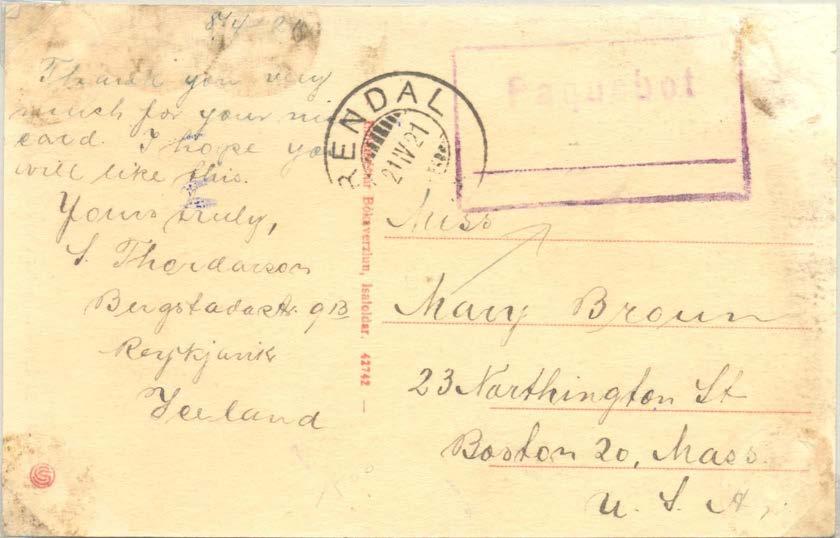 8/4 20
Thank you very
much for your
card. I hope you
will like this.
Yours truly,
S. Thordarson
Bergstadastr. 9B
Reykjavik
Iceland
RENDAL
21 IV 21
Paquebot
Bókaverzlun, Isafoldar. 42742 —
Miss
Mary Broun
23 Northington St
Boston 20, Mass.
U. S. A.